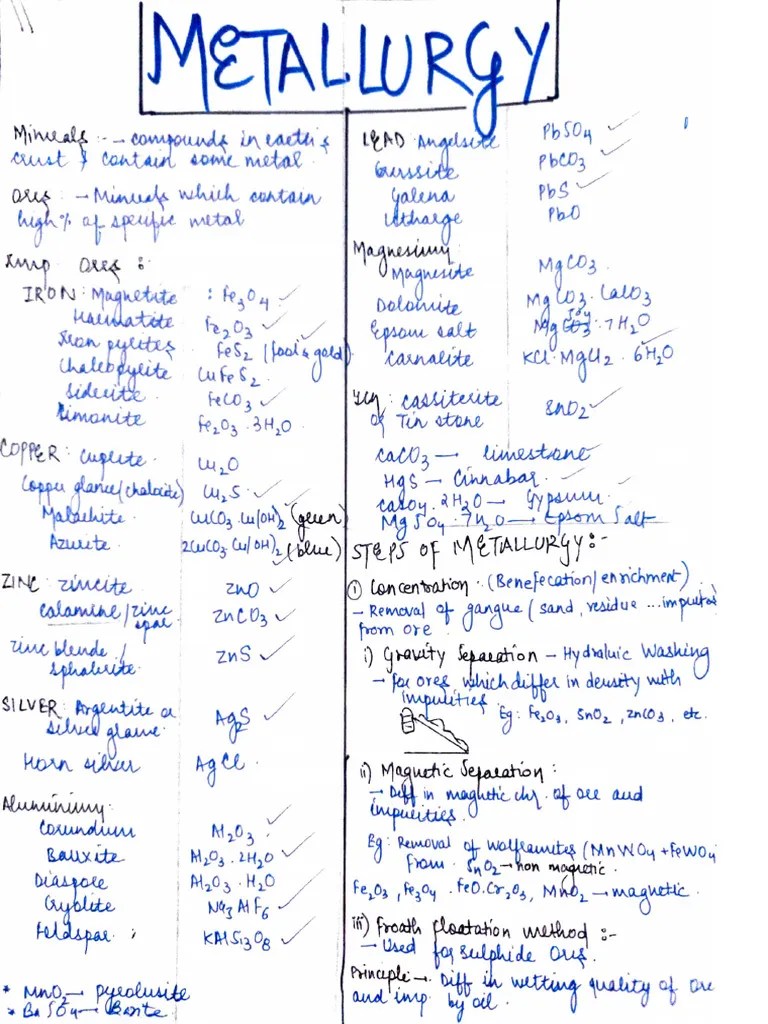 METALLURGY
Minerals :- → compounds in earth's
crust & contain some metal.
Ores :- → Minerals which contain
high % of specific metal
Imp Ores :
IRON : Magnetite : Fe3O4 ✓
Haematite Fe2O3 ✓
Iron pyrites FeS2 (fool's gold)
Chalcopyrite CuFeS2
Siderite FeCO3 ✓
Limonite Fe2O3 · 3H2O
COPPER : Cuprite Cu2O
Copper glance/(chalocite) Cu2S ✓
Malachite CuCO3.Cu(OH)2 (green)
Azurite 2CuCO3 Cu(OH)2 (blue)
ZINC : Zincite ZnO ✓
calamine/zinc ZnCO3 ✓
spar
Zinc blende / ZnS ✓
Sphalerite
SILVER : Argentite or Ag2S ✓
silver glance
Horn silver AgCl
Aluminium:
Corundum Al2O3 ✓
Bauxite Al2O3 · 2H2O ✓
Diaspore Al2O3 · H2O ✓
Cryolite Na3AlF6 ✓
Feldspar : KAlSi3O8 ✓
* MnO2 → pyrolusite
* BaSO4 → Barite
LEAD Angelsite PbSO4 ✓
Cerssite PbCO3 ✓
Galena PbS ✓
litharge PbO
Magnesium:
Magnesite MgCO3
Dolomite MgCO3 · CaCO3
Epsom salt MgSO4 · 7H2O
Carnalite KCl · MgCl2 · 6H2O
Tin : cassiterite SnO2 ✓
or Tin stone
CaCO3 → limestone
HgS → Cinnabar
CaSO4 · 2H2O → Gypsum
MgSO4 · 7H2O → Epsom Salt
STEPS OF METALLURGY :-
① Concentration : (Benefecation/enrichment)
- Removal of gangue (sand, residue ... impurities
from ore
i) Gravity Separation - Hydraluic Washing
→ for ores which differ in density with
impurities
Eg: Fe2O3, SnO2, ZnCO3, etc.
ii) Magnetic Separation :
→ Diff in magnetic chr. of ore and
impurities.
Eg: Removal of wolframites (MnWO4 + FeWO4
from SnO2 → non magnetic.
Fe2O3, Fe3O4 . FeO.Cr2O3, MnO2 → magnetic.
iii) Froath floatation method :-
→ Used for sulphide Ores.
Principle → Diff in wetting quality of ore
and imp. by oil.